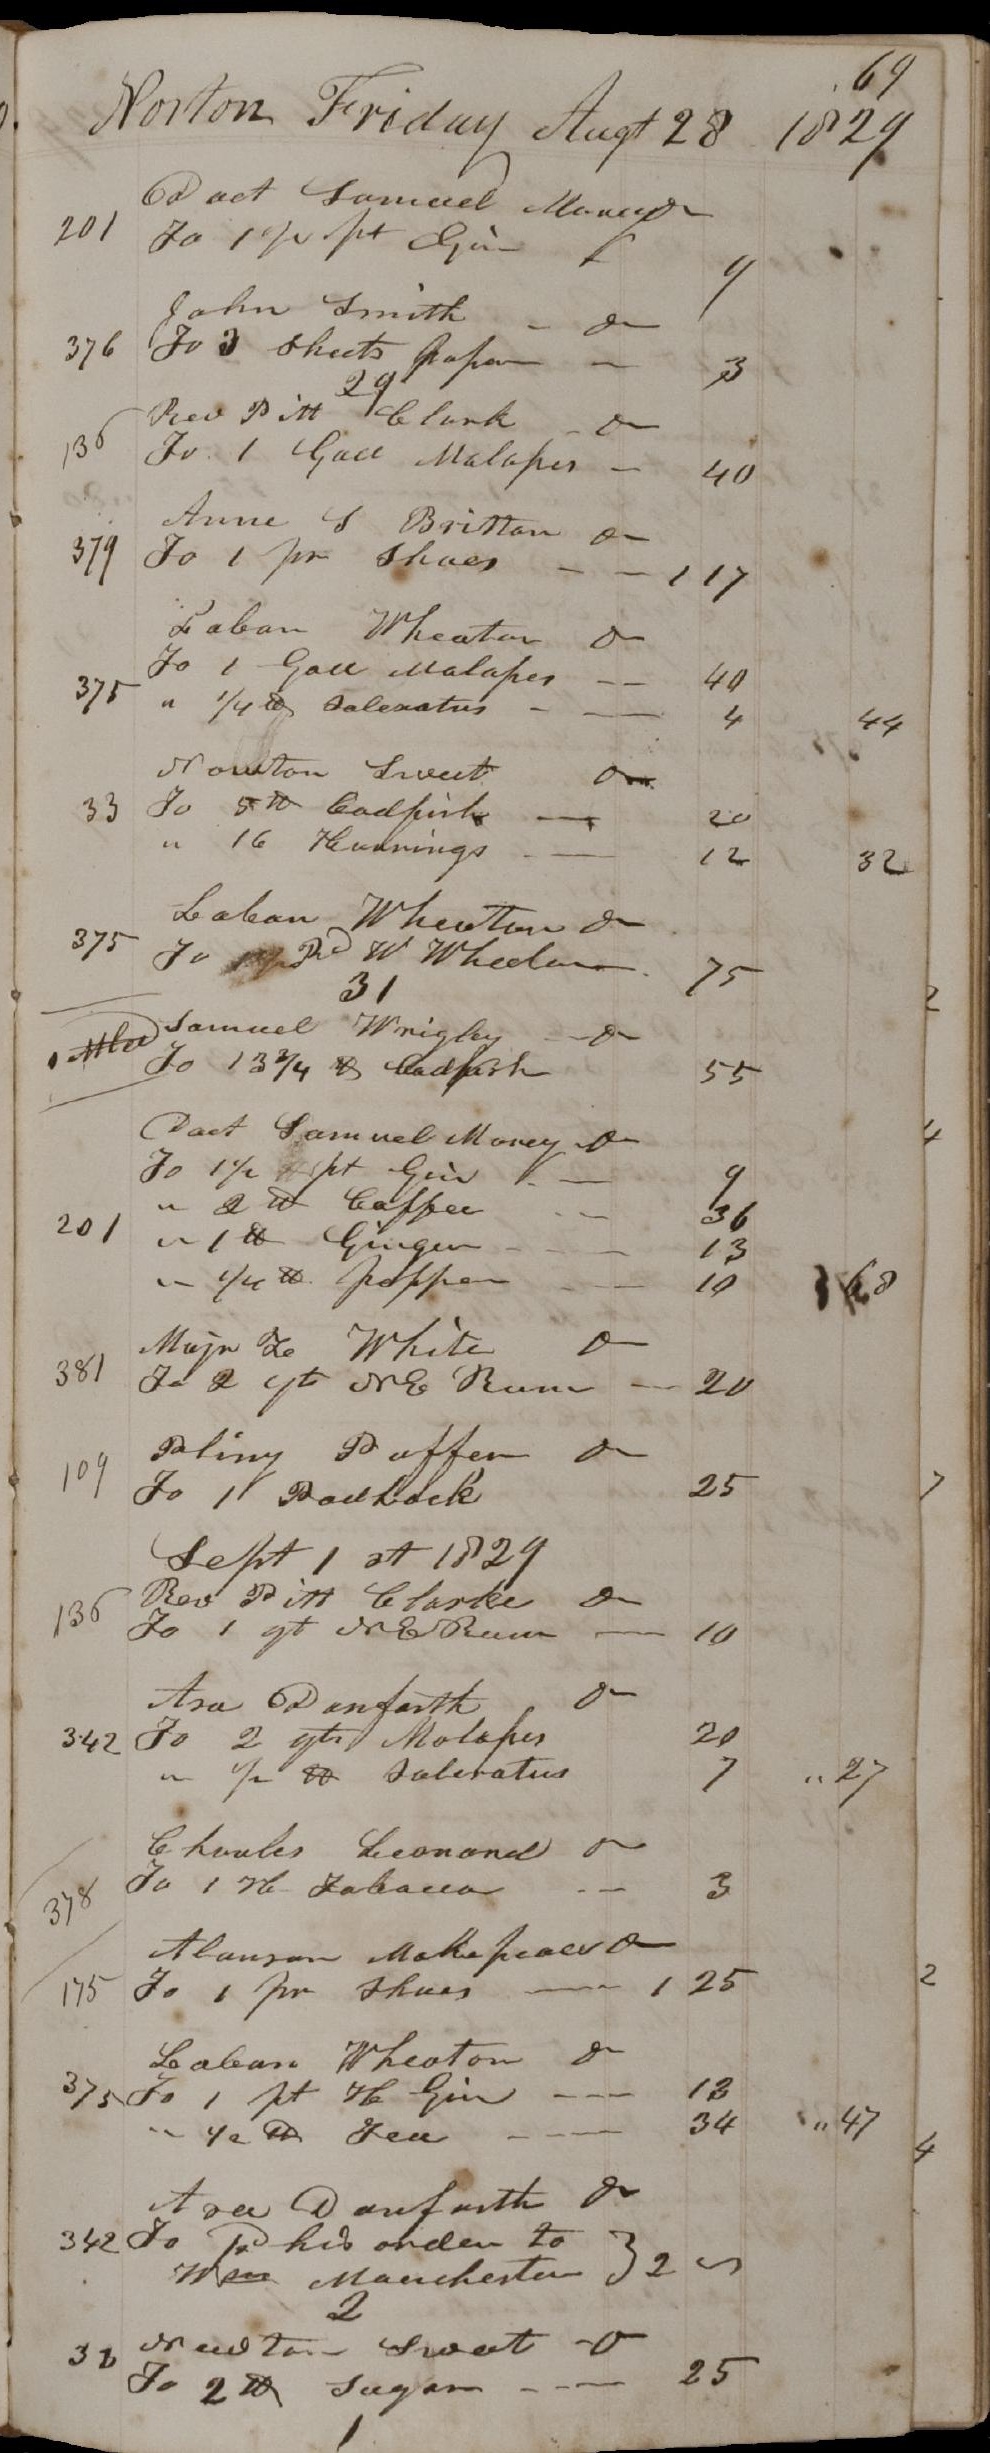 69
Norton Friday Augt 28 1829
Doct Samuel Morey Dr
201 To 1 1/2 pt Gin 9
John Smith - Dr
376 To 3 Sheets Paper - 3
29
Rev Pitt Clark - Dr
136 To 1 Gall Molasses - 40
Anne S Britton Dr
379 To 1 pr Shoes - - 1 17
Laban Wheaton Dr
To 1 Gall Molasses - - 40
375 " 1/4 lb Saleratus - - 4 44
Newton Sweet Dr
33 To 5 lb Codfish - 20
" 16 Herrings - - 12 32
Laban Wheaton Dr
375 To Pd W Wheeler 75
31
Samuel Wrigley - Dr
To 13 3/4 lb Codfish 55
Doct Samuel Morey Dr
To 1 1/2 pt Gin - - 9
" 2 lb Coffee - - 36
201 " 1 lb Ginger - - 13
" 1/4 lb pepper - 10 68
Majr Ze White Dr
381 To 2 qts N E Rum - 20
Pliny Puffer Dr
109 To 1 Padlock 25
Sept 1 st 1829
Rev Pitt Clarke Dr
136 To 1 qt N E Rum - 10
Asa Danforth Dr
342 To 2 qts Molasses 20
" 1/2 lb Saleratus 7 " 27
Charles Leonard Dr
378 To 1 H Tobacco - - 3
Alanson Makepeace Dr
175 To 1 pr Shoes - 1 25
Laban Wheaton Dr
375 To 1 pt H Gin - - - 13
" 1/2 lb Tea - - - 34 " 47
Asa Danforth Dr
342 To Pd his order to
Wm Manchester } 2
2
Newton Sweet - Dr
33 To 2 lb Sugar - - - 25
1